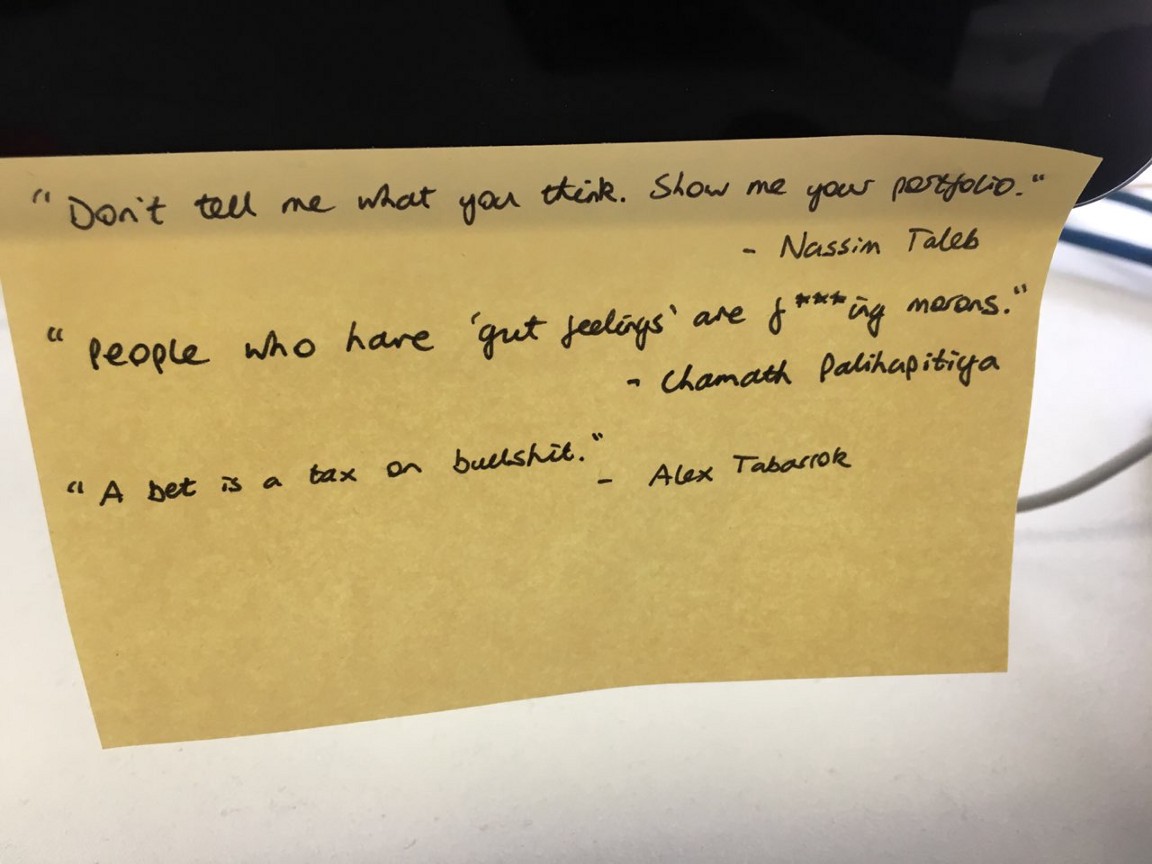 "Don't tell me what you think. Show me your portfolio."
- Nassim Taleb
"People who have 'gut feelings' are f***ing morons."
- Chamath Palihapitiya
"A bet is a tax on bullshit." - Alex Tabarrok